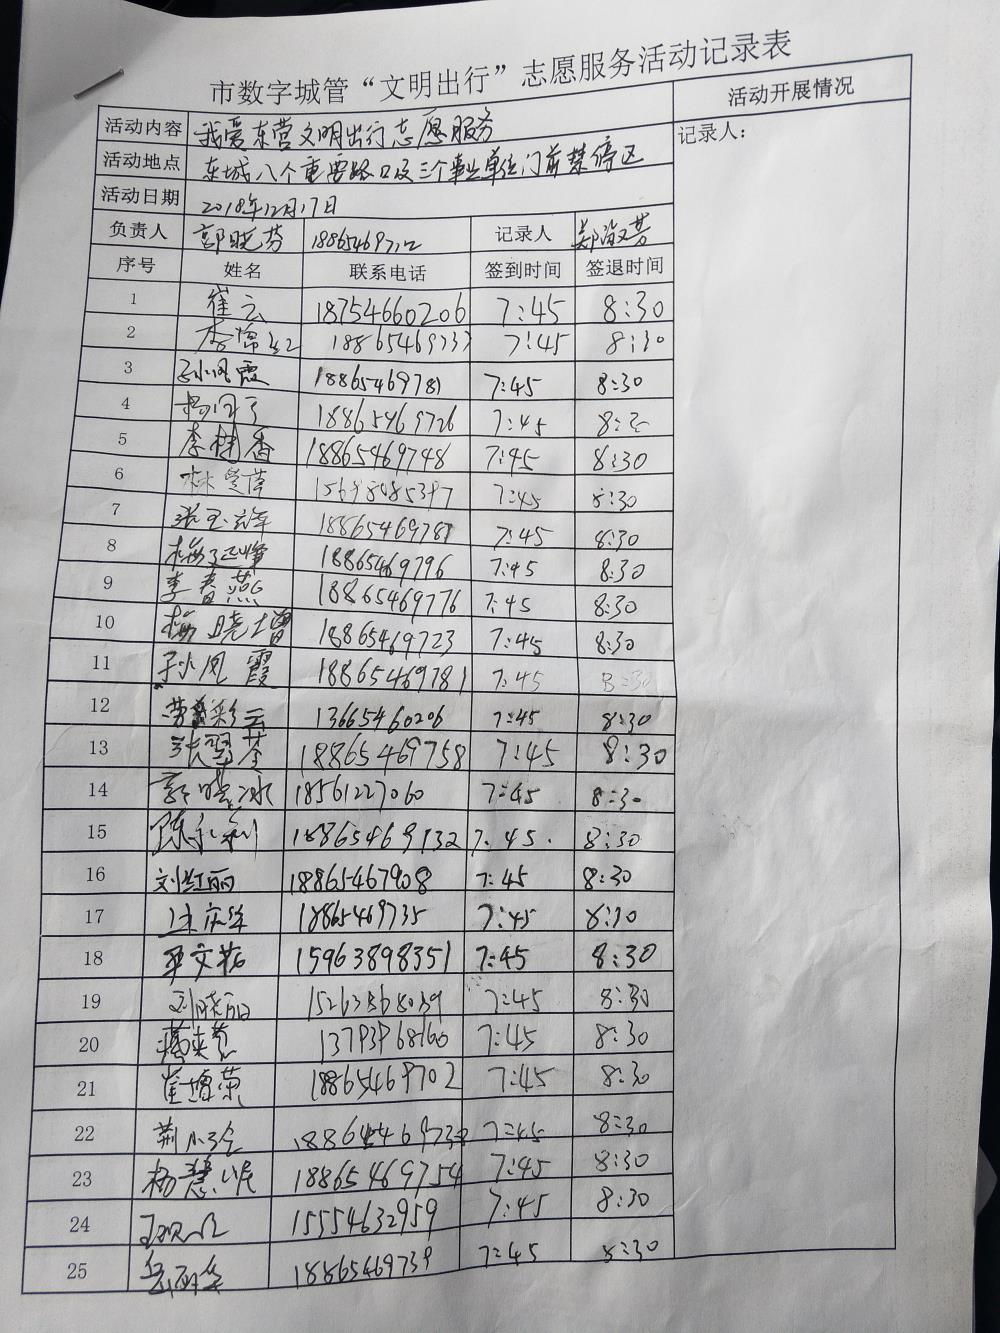 市数字城管“文明出行”志愿服务活动记录表
活动内容 我爱东营文明出行志愿服务 活动开展情况
活动地点 东城八个重要路口及三个事业单位门前禁停区 记录人：
活动日期 2018年12月17日
负责人 郭晓芬 18865469712 记录人 郑淑芳
序号 姓名 联系电话 签到时间 签退时间
1 崔云 18754660206 7:45 8:30
2 李 18865469733 7:45 8:30
3 孙凤霞 18865469781 7:45 8:30
4 18865469726 7:45 8:30
5 李树香 18865469748 7:45 8:30
6 林 7:45 8:30
7 张玉 18865469787 7:45 8:30
8 18865469796 7:45 8:30
9 李春燕 18865469776 7:45 8:30
10 杨晓增 18865469723 7:45 8:30
11 孙凤霞 18865469781 7:45 8:30
12 彩云 13665460206 7:45 8:30
13 张翠芬 18865469758 7:45 8:30
14 郭晓冰 18561227060 7:45 8:30
15 陈永利 18865469732 7:45 8:30
16 刘红丽 18865467908 7:45 8:30
17 庆华 18865469735 7:45 8:30
18 文 15963898351 7:45 8:30
19 刘晓丽 7:45 8:30
20 13793968160 7:45 8:30
21 崔增荣 18865469702 7:45 8:30
22 荆小 7:45 8:30
23 杨慧 18865469754 7:45 8:30
24 15554632959 7:45 8:30
25 岳丽华 18865469739 7:45 8:30